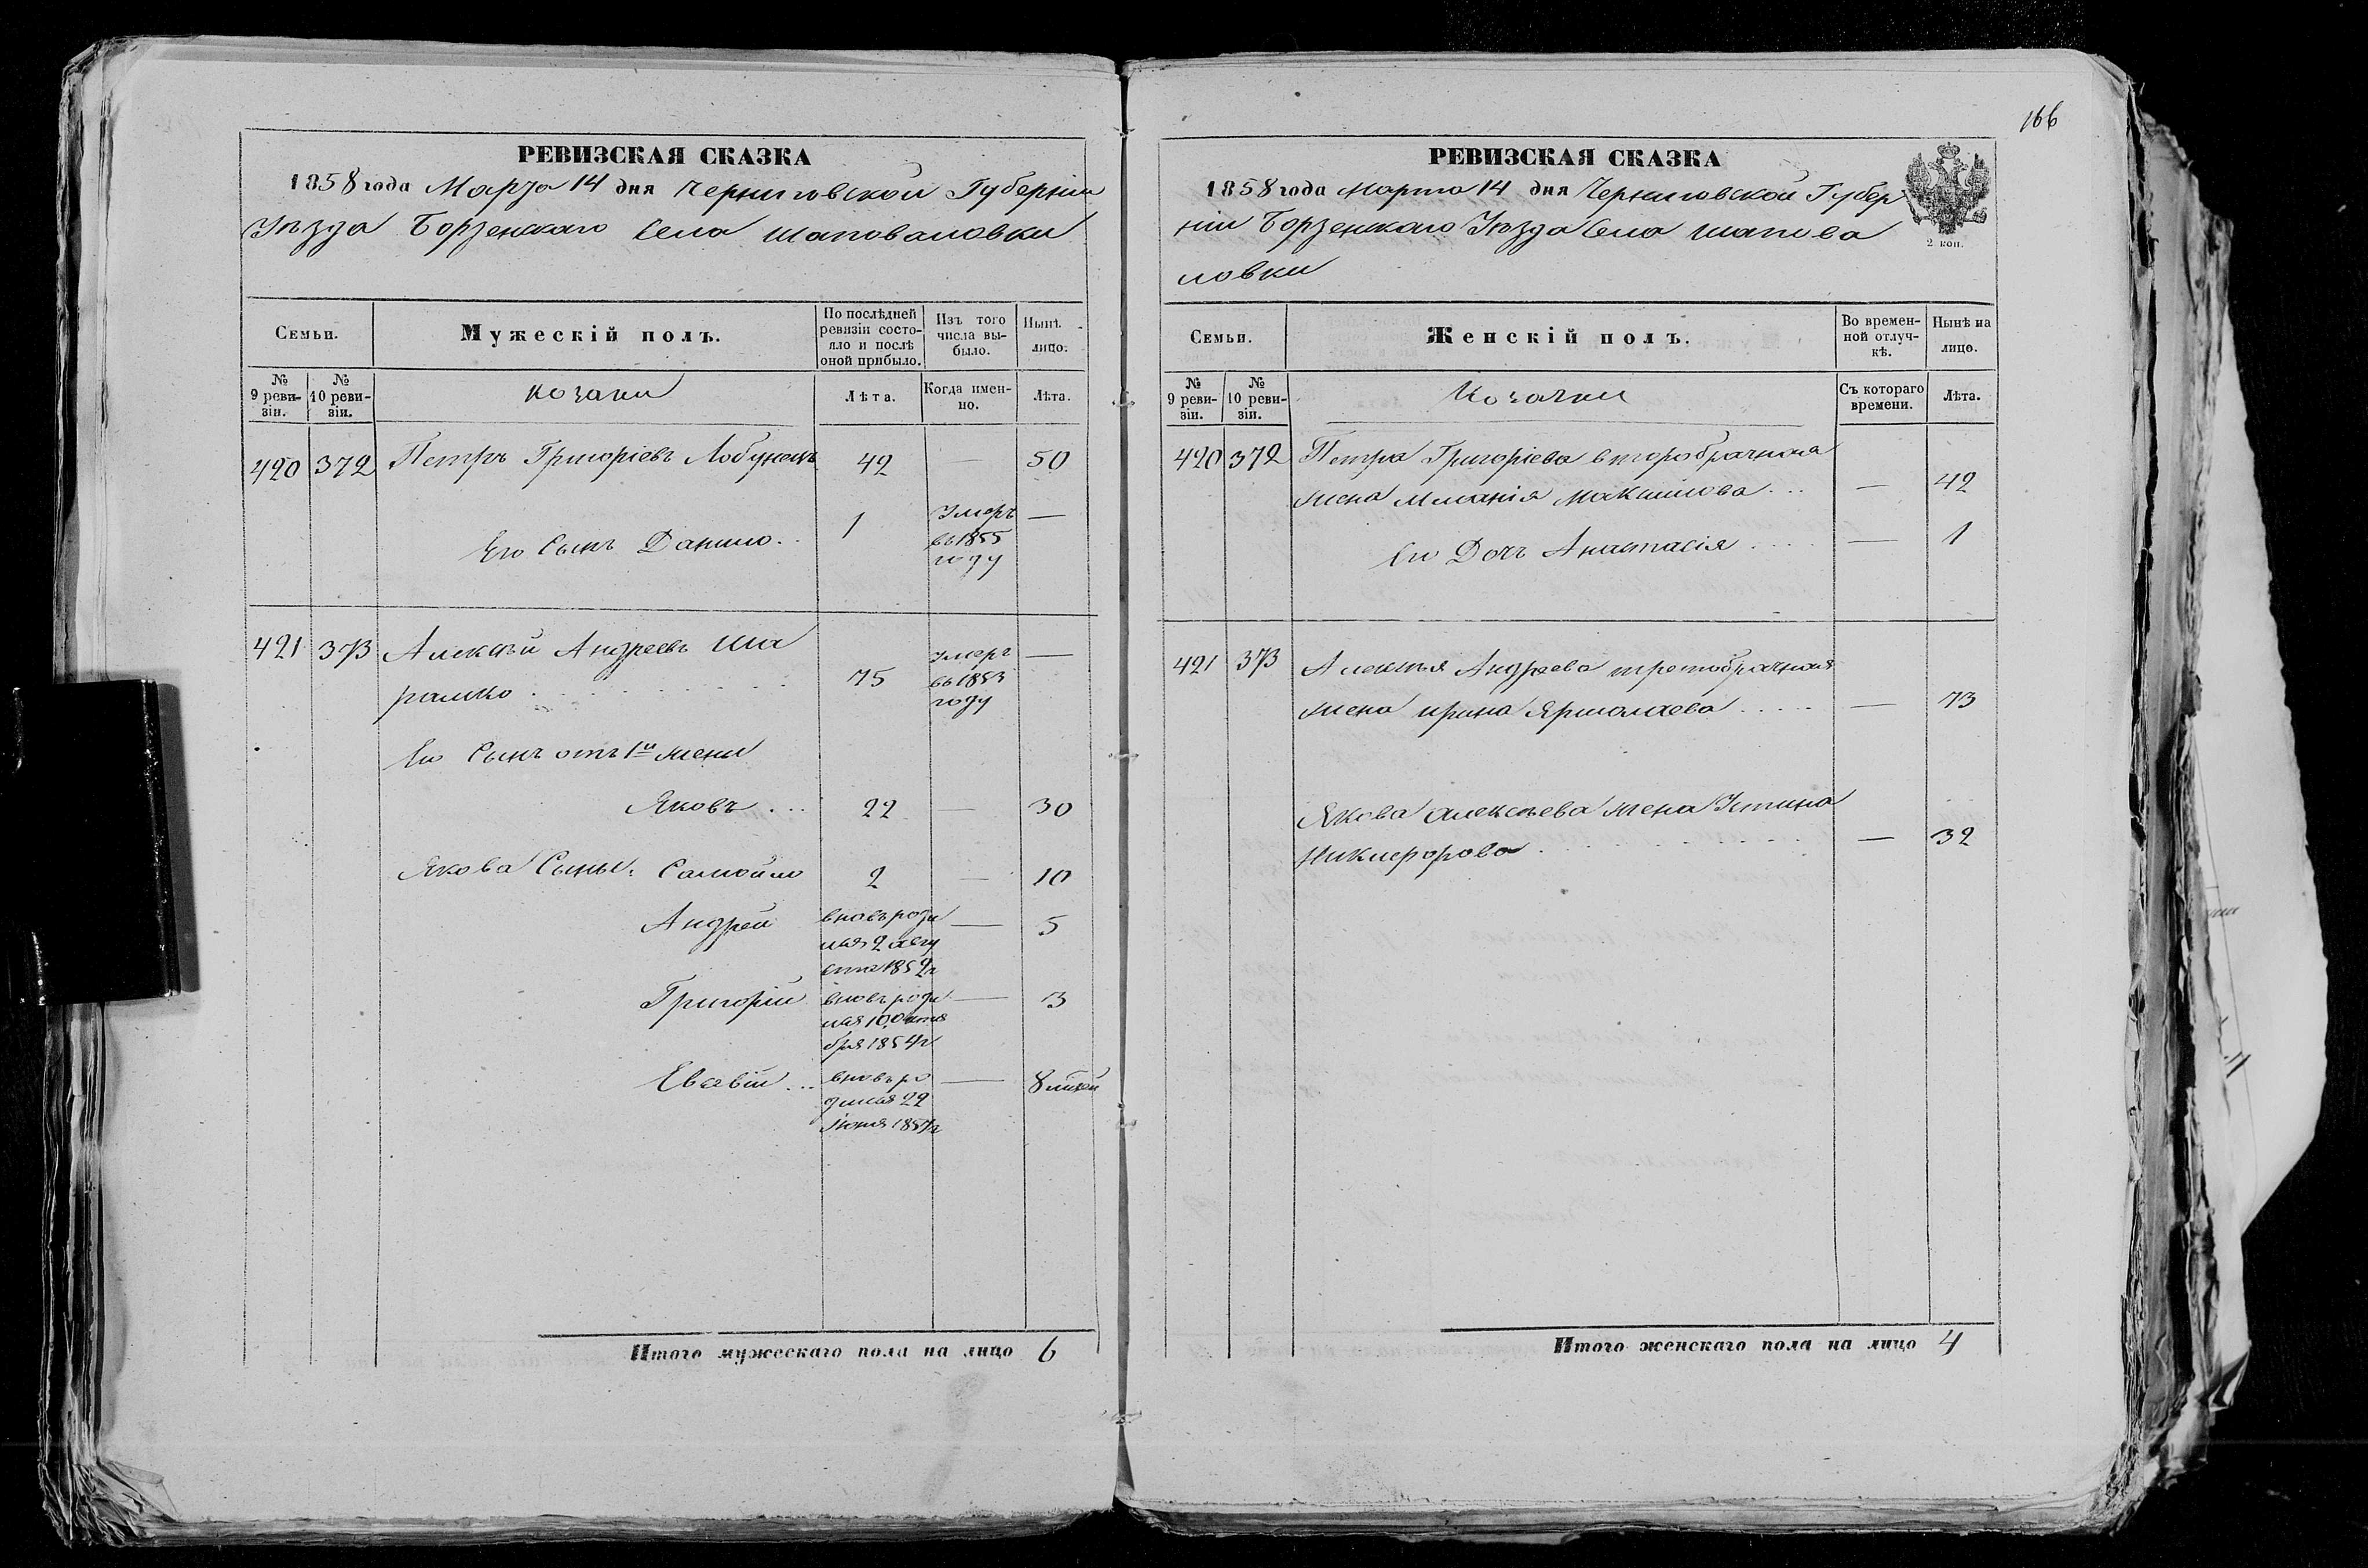 РЕВИЗСКАЯ СКАЗКА
1858 года Марта 14 дня Черниговской Губерніи
Уѣзда Борзенскаго Села Шаповаловки
Семьи.
Мужескій полъ.
По послѣдней ревизіи состояло и послѣ оной прибыло.
Изъ того числа выбыло.
Нынѣ на лицо.
№ 9 ревизіи.
№ 10 ревизіи.
козаки
Лѣта.
Когда именно.
Лѣта.
420 372 Петръ Григоріевъ Лобунецъ 42 — 50
Его Сынъ Данило .. 1 Умеръ въ 1855 году —
421 373 Алексѣй Андреевъ Ша
рамко 75 Умеръ въ 1853 году —
Его Сынъ отъ 1й жены
Яковъ ... 22 — 30
Якова Сыны: Самойло 2 — 10
Андрей вновь роди
лся 2 авгу
ста 1852 г — 5
Григорій вновь роди
лся 10 Октя
бря 1854 г — 3
Евсевій ... вновь ро
дился 22
Іюня 1857 г — 8 мѣсяц
Итого мужескаго пола на лицо 6
166
РЕВИЗСКАЯ СКАЗКА
1858 года Марта 14 дня Черниговской Губер
ніи Борзенскаго Уѣзда Села Шапова
ловки
2 коп.
Семьи.
Женскій полъ.
Во временной отлучкѣ.
Нынѣ на лицо.
№ 9 ревизіи.
№ 10 ревизіи.
Козачки
Съ котораго времени.
Лѣта.
420 372 Петра Григоріева второбрачная
жена Меланія Максимова ... — 42
Его Доч Анастасія .... — 1
421 373 Алексѣя Андреева третобрачная
жена Ирина Ярмолаева ..... — 73
Якова Алексѣева жена Устина
Никифорова — 32
Итого женскаго пола на лицо 4